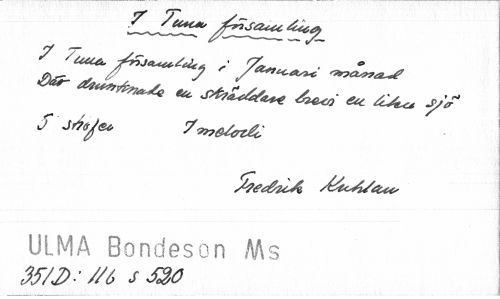 I Tuna församling
I Tuna församling i Januari månad
Där drunknade en skräddare bredvid en liten sjö
5 strofer 1 melodi
Fredrik Kuhlau
ULMA Bondeson Ms
351D: 116 s 520